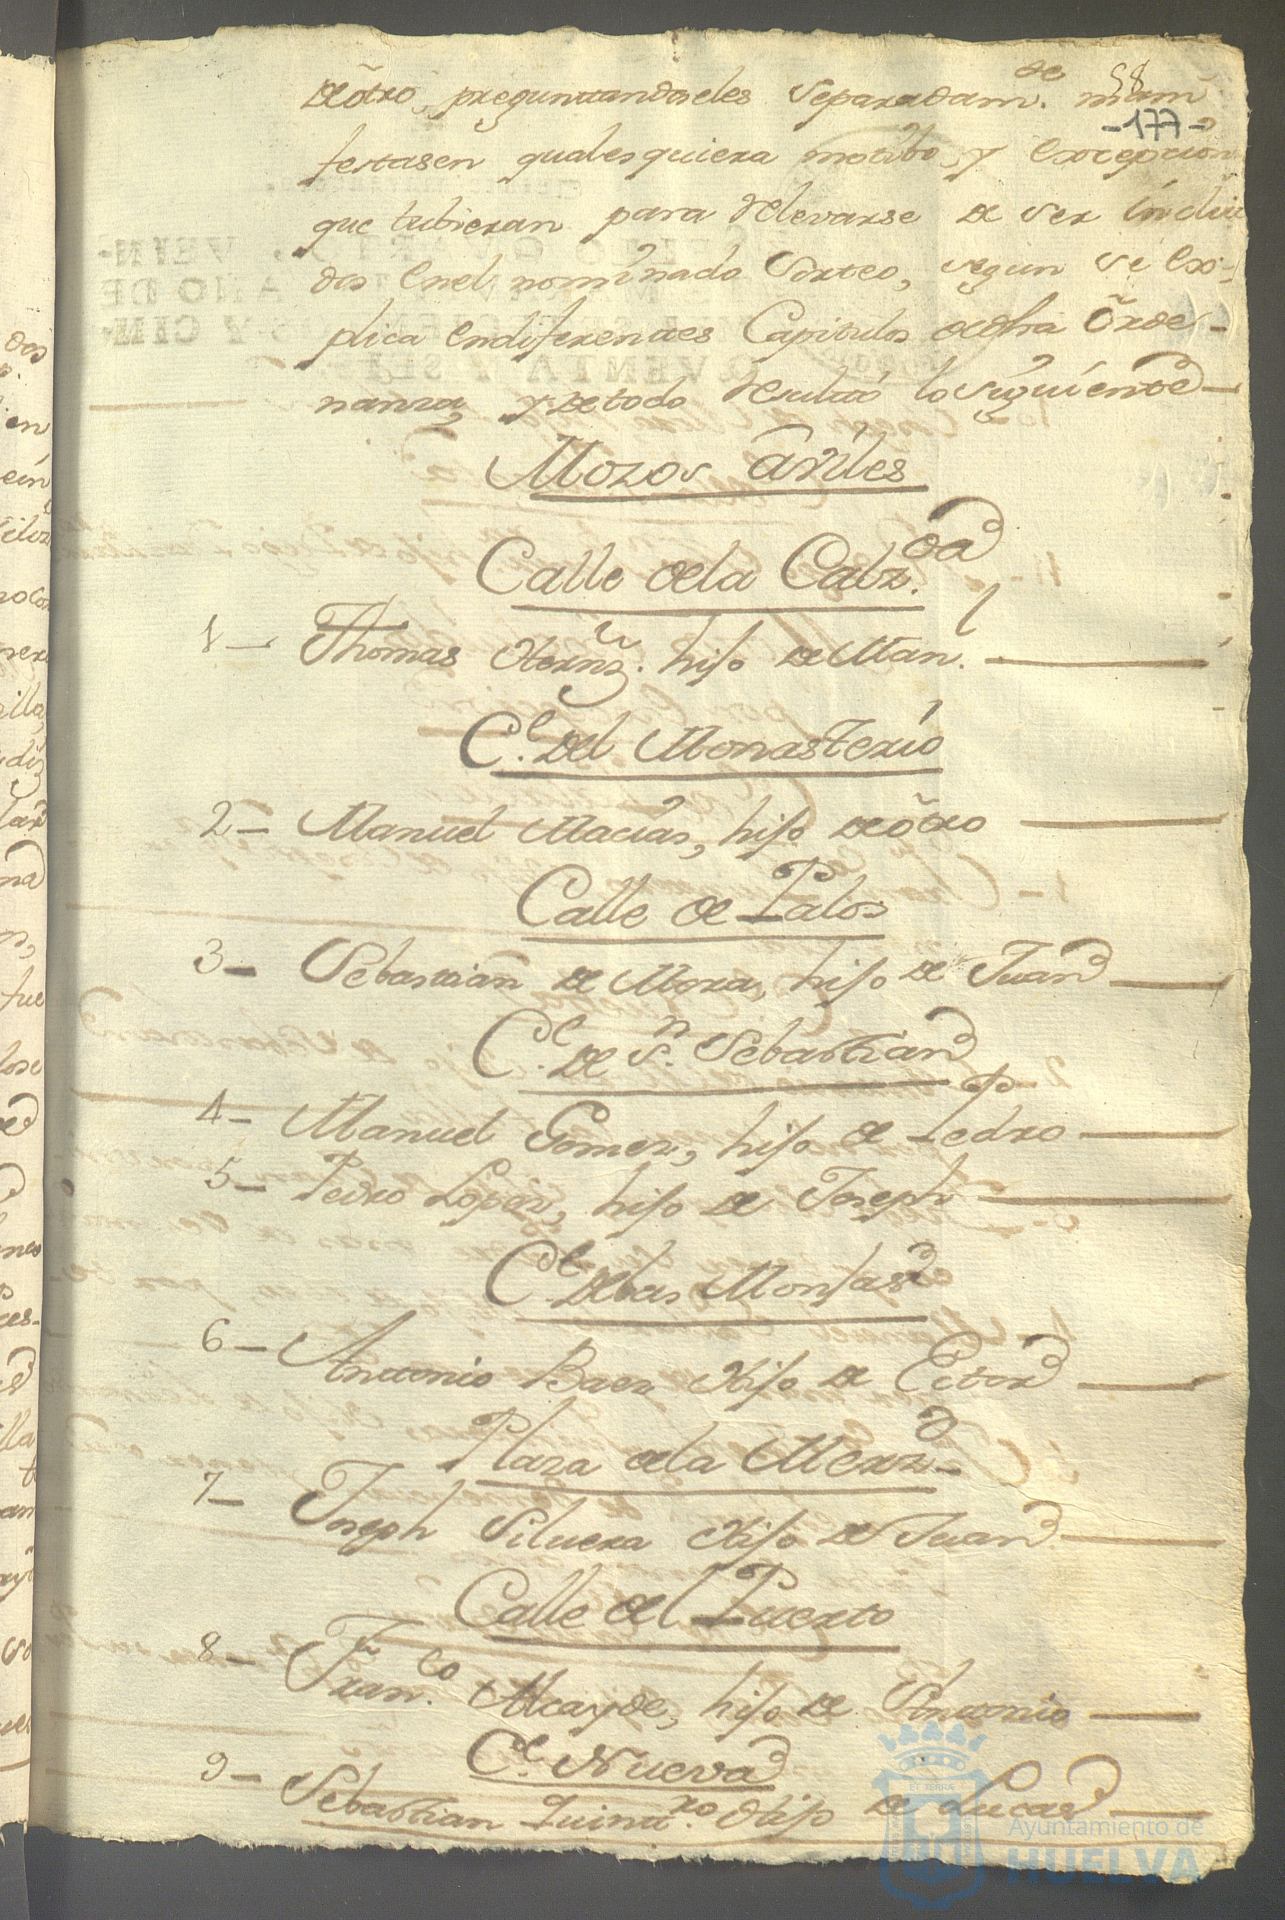 58
-177-
de ôtro, preguntandoseles separadam.te mani
festasen qualesquiera motibos, y excepcion
que tubieran para relevarse de ser inclui
dos en el nominado Sorteo, segun se ex-
plica en diferentes Capitulos de dha Orde-
nanza, y de todo resultó lo siguiente
Mozos aviles
Calle de la Calz.da
1- Thomas Hernz. hijo de Man.l
C.e del Monasterio
2- Manuel Macias, hijo de ôtro
Calle de Palos
3- Sebastian de Mora, hijo de Juan
C.e de S.n Sebastian
4- Manuel Gomez, hijo de Pedro
5- Pedro Lopez, hijo de Joseph
C.e de las Monjas
6- Antonio Baez Hijo de Ector
Plaza de la Merz.d
7- Joseph Siluera Hijo de Juan
Calle del Puerto
8- Fran.co Alcayde, hijo de Antonio
C.e Nueva
9- Sebastian Quint.ro Hijo de Lucas
Ayuntamiento de
HUELVA